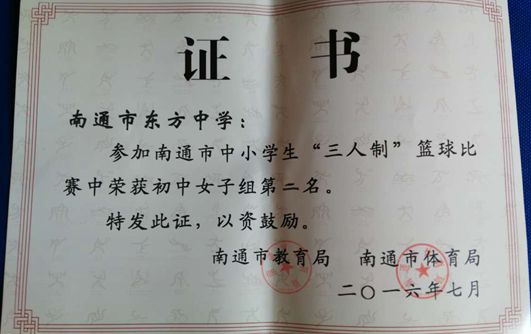 证 书
南通市东方中学：
参加南通市中小学生“三人制”篮球比
赛中荣获初中女子组第二名。
特发此证，以资鼓励。
南通市教育局 南通市体育局
二〇一六年七月